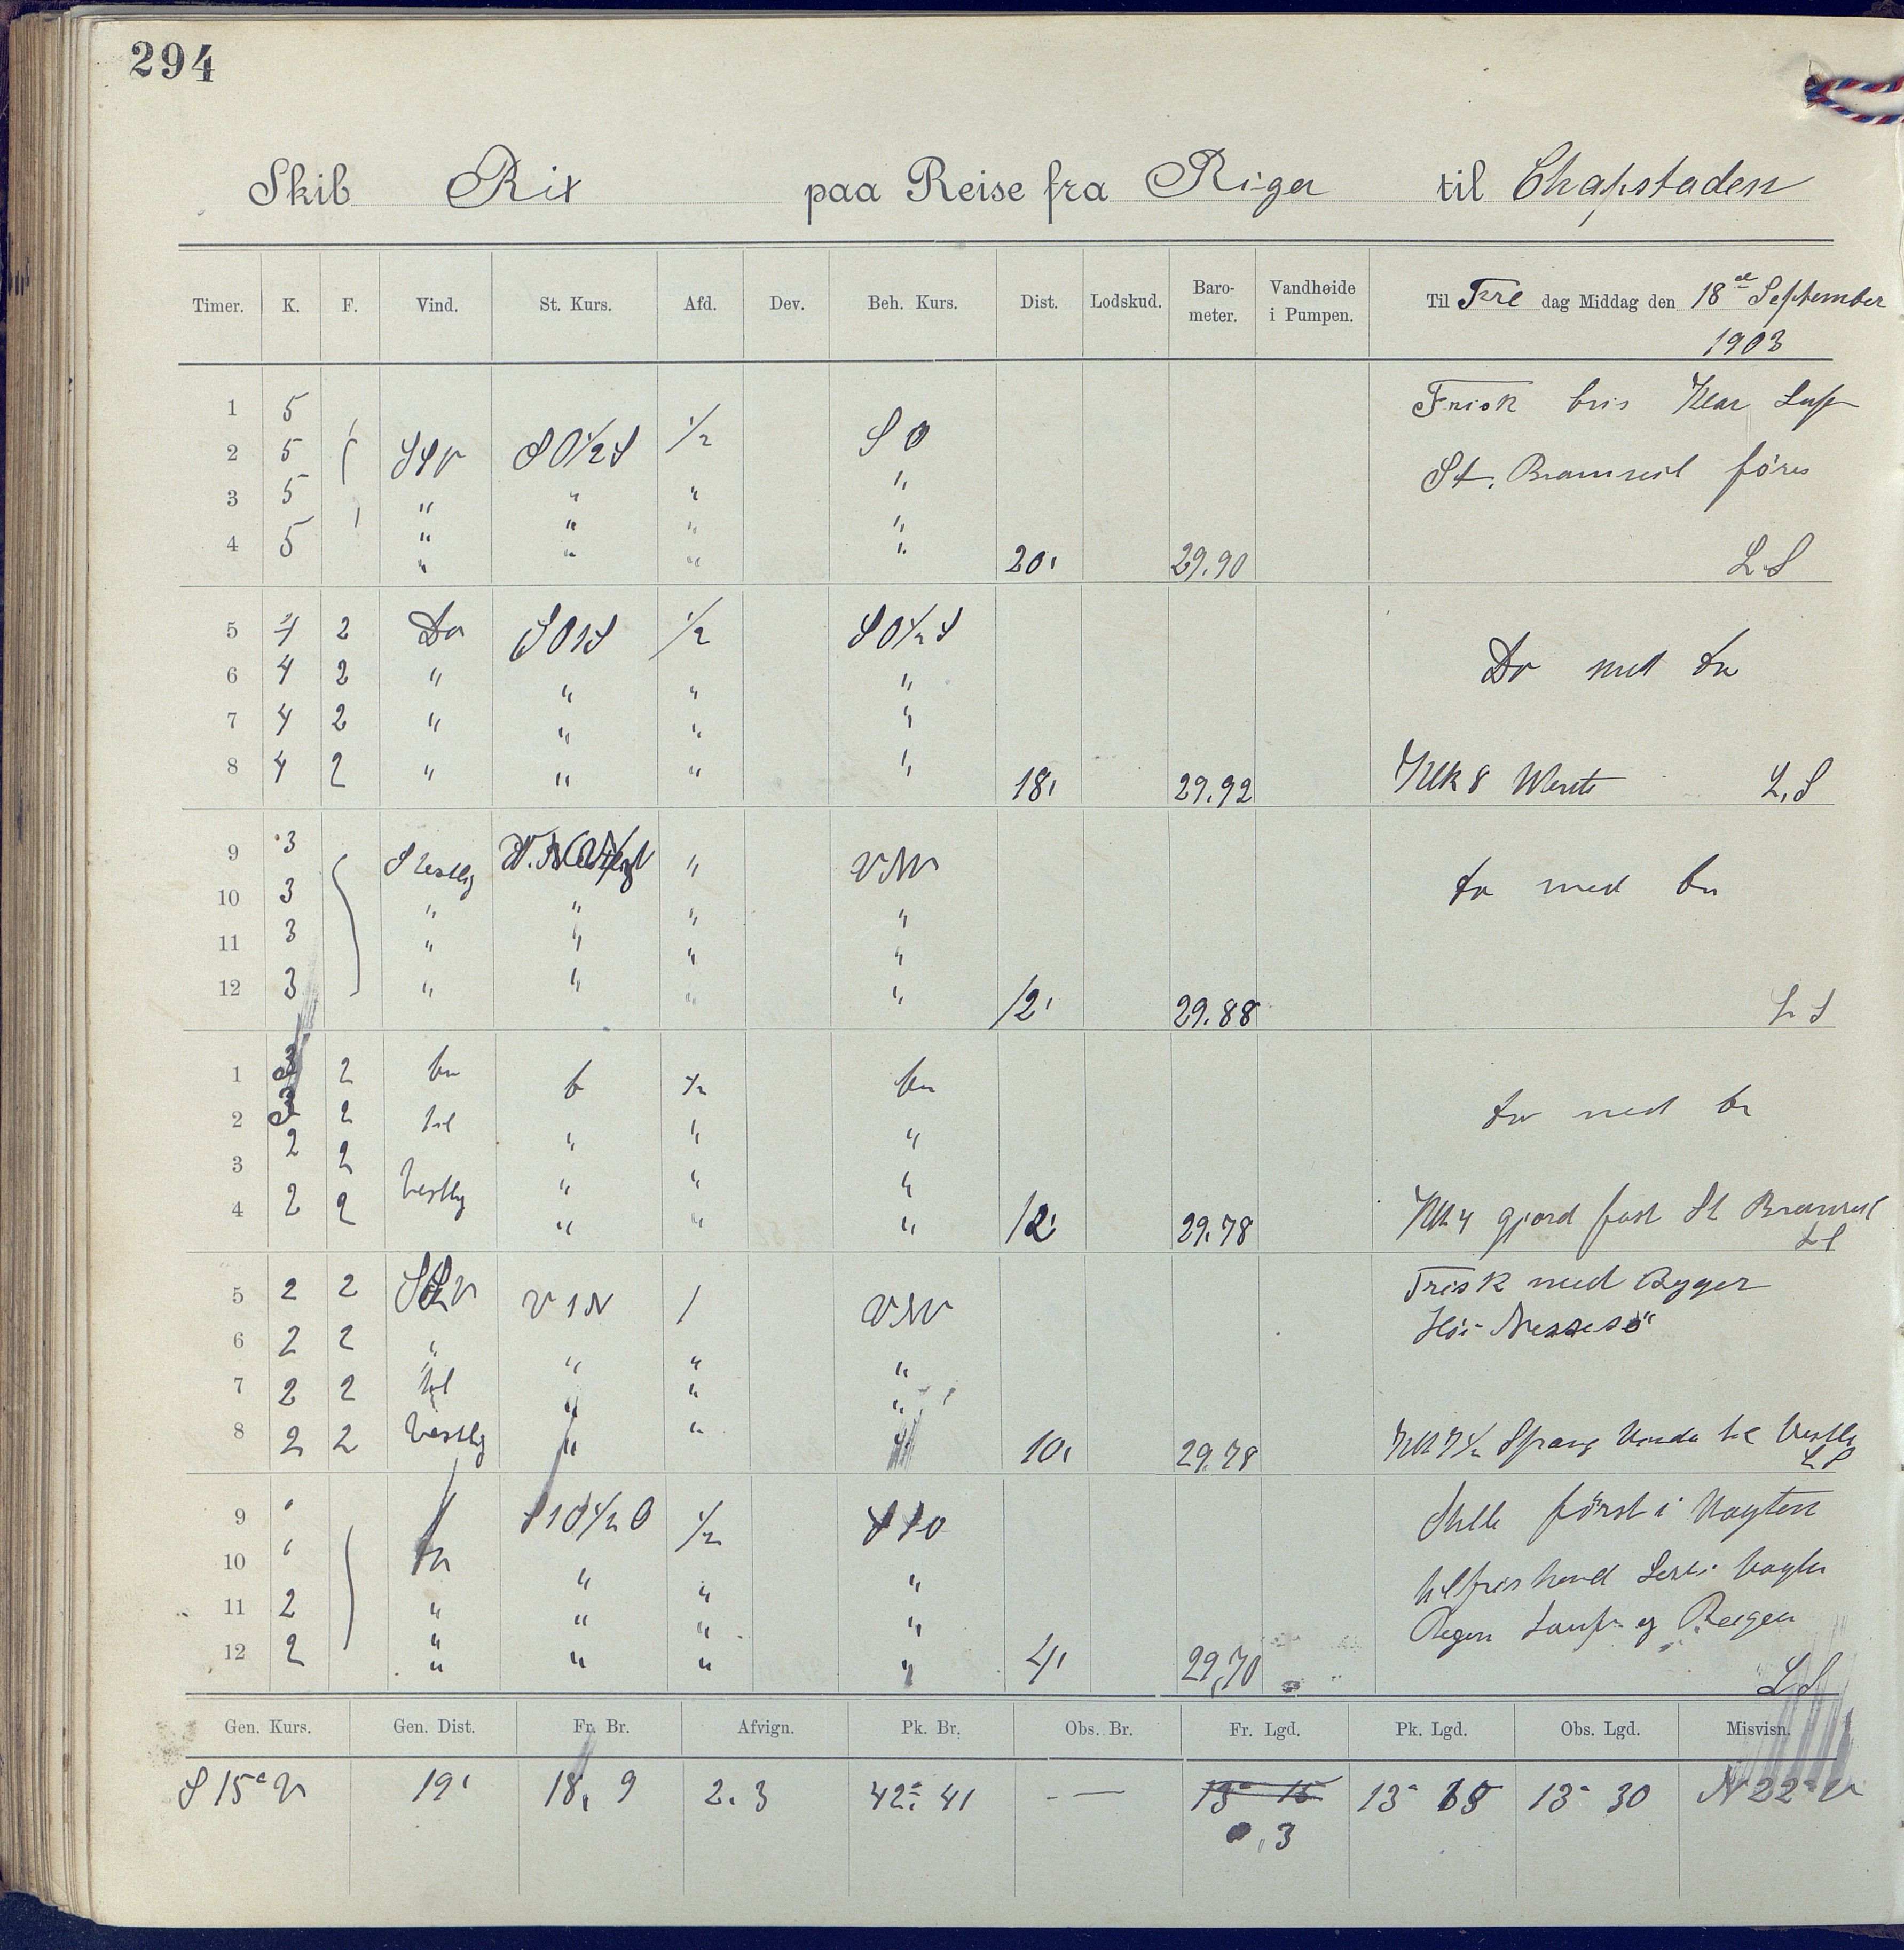 294
Skib Rix paa Reise fra Riga til Chapstaden
Timer. K. F. Vind. St. Kurs. Afd. Dev. Beh. Kurs. Dist. Lodskud. Baro-meter. Vandhøide i Pumpen. Til Fre dag Middag den 18de September
1903
1 5 Frisk bris Klar Luft
2 5 SSV SO½S ½ SO
3 5 " " " " St. Bramseil föres
4 5 " " " " 20' 29.90 LS
5 4 2 Do SO1S ½ SO½S
6 4 2 " " " " Do med do
7 4 2 " " " "
8 4 2 " " " " 18' 29.92 Klk 8 Wente L,S
9 3 S Vestlig " VNV
10 3 " " " " do med do
11 3 " " " "
12 3 " " " " 12' 29.88 LS
1 3 2 do do ½ do
2 3 2 til " " " do med do
3 2 2 Vestlig " " "
4 2 2 " " " 12' 29.78 Klk 4 gjord fast St Bramseil
LS
5 2 2 SSV V1N 1 VNV Frisk med Byger
6 2 2 " " " " Höi Nessesö
7 2 2 til " " "
8 2 2 Vestlig " " 10' 29.78 Klk 7½ Sprang Vinden til Vestlig
LS
9 ' S1O½O ½ SSO Stille först i Vagten
10 ' do " " "
11 2 " " " "
12 2 " " " " 4' 29,70 Regen
LS
Gen. Kurs. Gen. Dist. Fr. Br. Afvign. Pk. Br. Obs. Br. Fr. Lgd. Pk. Lgd. Obs. Lgd. Misvisn.
S 15° V 19' 18, 9 2. 3 42° 41 - — 13° 15 13° 18 13° 30 N 22° V
, 3